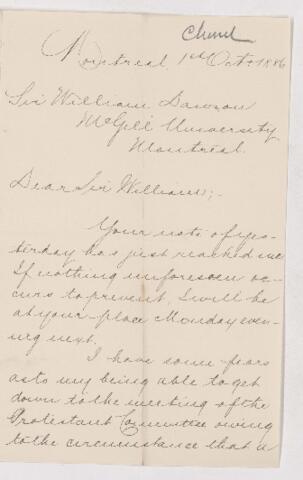 Church
Montreal 1st Oct. 1886
Sir William Dawson
McGill University
Montreal.
Dear Sir William;-
Your note of yes-
terday has just reached me
If nothing unforeseen oc-
curs to prevent, I will be
at your place Monday even-
ing next.
I have some fears
as to my being able to get
down to the meeting of the
Protestant Committee owing
to the circumstance that a